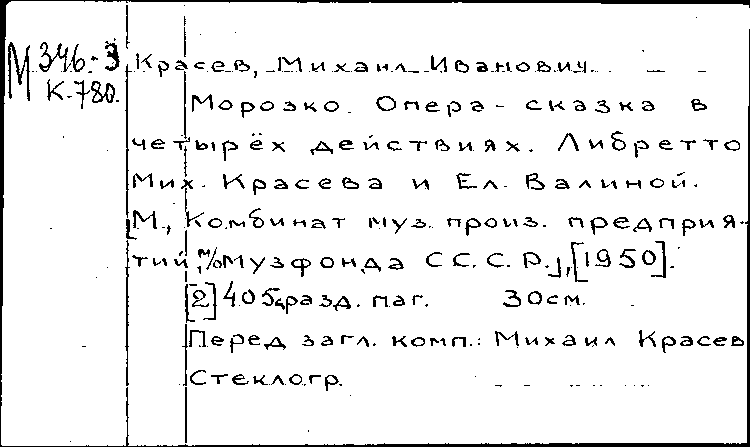 М 346-3 Красев, Михаил Иванович.
К-780.
Морозко. Опера - сказка в
четырёх действиях. Либретто
Мих. Красева и Ел. Валиной.
[М., Комбинат муз. произ. предприя-
тий, Музфонда С С. С. Р.], [1950].
[2] 405 разд. паг. 30см.
Перед загл. комп.: Михаил Красев
Стеклогр.